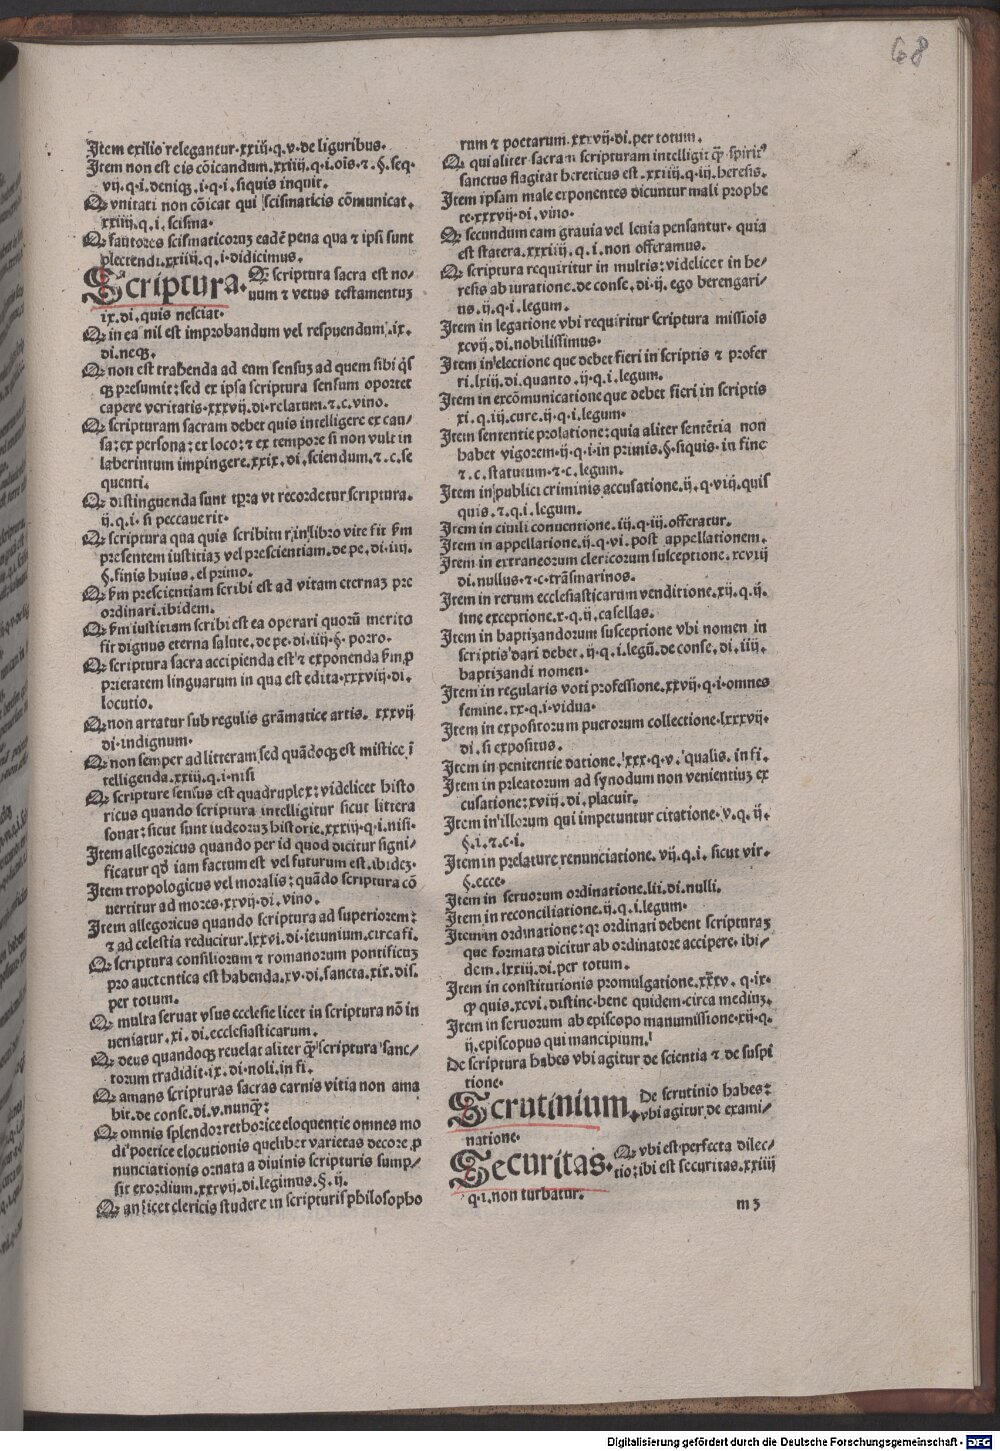 68
Item exilio relegantur.xxiij.q.v.de liguribus.
Item non est eis cōicandum.xxiiij.q.i.oīs.⁊.§.seq.
vij.q.i.deniqꝫ.i.q.i.siquis inquit.
Q vnitati non cōicat qui scismaticis cōmunicat.
xxiiij.q.i.scisma.
Q fautores scismaticoruꝫ eadē pena qua ⁊ ipsi sunt
plectendi.xxiiij.q.i.didicimus.
Scriptura. Q scriptura sacra est no-
uum ⁊ vetus testamentuꝫ
ix.di.quis nesciat.
Q in ea nil est improbandum vel respuendum.ix.
di.neqꝫ.
Q non est trahenda ad eum sensuꝫ ad quem sibi q̄s
qꝫ presumit: sed ex ipsa scriptura sensum oportet
capere veritatis.xxxvij.di.relatum.⁊.c.vino.
Q scripturam sacram debet quis intelligere ex cau/
sa: ex persona: ex loco: ⁊ ex tempore si non vult in
laberintum impingere.xxix.di.sciendum.⁊.c.se
quenti.
Q distinguenda sunt tp̄ra vt recordetur scriptura.
ij.q.i.si peccauerit.
Q scriptura qua quis scribitur in libro vite fit ẜm
presentem iustitiaꝫ vel prescientiam.de pe.di.iiij.
§.finis huius.el primo.
Q ẜm prescientiam scribi est ad vitam eternaꝫ pre
ordinari.ibidem.
Q ẜm iustitiam scribi est ea operari quorū merito
sit dignus eterna salute.de pe.di.iiij.§.porro.
Q scriptura sacra accipienda est ⁊ exponenda ẜm ꝓ
prietatem linguarum in qua est edita.xxxviij.di.
locutio.
Q non artatur sub regulis grāmatice artis. xxxvij
di.indignum.
Q non semper ad litteram sed quādoqꝫ est mistice ī
telligenda.xxiij.q.i.nisi
Q scripture sensus est quadruplex: videlicet histo
ricus quando scriptura intelligitur sicut littera
sonat: sicut sunt iudeoruꝫ historie.xxxiij.q.i.nisi.
Item allegoricus quando per id quod dicitur signi/
ficatur qd̄ iam factum est vel futurum est.ibideꝫ.
Item tropologicus vel moralis: quādo scriptura cō
uertitur ad mores.xxvij.di.vino.
Item allegoricus quando scriptura ad superiorem:
⁊ ad celestia reducitur.lxxvi.di.ieiunium.circa fi.
Q scriptura consiliorum ⁊ romanorum pontificuꝫ
pro auctentica est habenda.xv.di.sancta.xix.dis.
per totum.
Q multa seruat vsus ecclesie licet in scriptura nō in
ueniatur.xi.di.ecclesiasticarum.
Q deus quandoqꝫ reuelat aliter q̄ꝫ scriptura sanc/
torum tradidit.ix.di.noli.in fi.
Q amans scripturas sacras carnis vitia non ama
bit.de conse.di.v.nunq̄ꝫ:
Q omnis splendor rethorice eloquentie omnes mo
di poetice elocutionis quelibet varietas decore ꝓ
nunciationis ornata a diuinis scripturis sump/
sit exordium.xxxvij.di.legimus.§.ij.
Q an licet clericis studere in scripturis philosopho
rum ⁊ poetarum.xxxvij.di.per totum.
Q qui aliter sacram scripturam intelligit q̄ꝫ spiritꝰ
sanctus flagitat hereticus est.xxiiij.q.iij.heresis.
Item ipsam male exponentes dicuntur mali prophe
te.xxxvij.di.vino.
Q secundum eam grauia vel leuia pensantur. quia
est statera.xxiiij.q.i.non offeramus.
Q scriptura requiritur in multis: videlicet in he/
resis abiuratione.de conse.di.ij.ego berengari/
us.ij.q.i.legum.
Item in legatione vbi requiritur scriptura missiois
xcvij.di.nobilissimus.
Item in electione que debet fieri in scriptis ⁊ profer
ri.lxiij.di.quanto.ij.q.i.legum.
Item in excōmunicatione que debet fieri in scriptis
xi.q.iij.cure.ij.q.i.legum.
Item sententie prolatione: quia aliter sentētia non
habet vigorem.ij.q.i.in primis.§.siquis.in fine
⁊.c.statutum.⁊.c.legum.
Item in publici criminis accusatione.ij.q.viij.quis
quis.⁊.q.i.legum.
Item in ciuili conuentione.iij.q.iij.offeratur.
Item in appellatione.ij.q.vi.post appellationem.
Item in extraneorum clericorum susceptione.xcviij
di.nullus.⁊.c.trāsmarinos.
Item in rerum ecclesiasticarum venditione.xij.q.ij.
sine exceptione.x.q.ij.casellas.
Item in baptizandorum susceptione vbi nomen in
scriptis dari debet.ij.q.i.legū.de conse.di.iiij.
baptizandi nomen.
Item in regularis voti professione.xxvij.q.i.omnes
femine.xx.q.i.vidua.
Item in expositorum puerorum collectione.lxxxvij.
di.si expositus.
Item in penitentie datione.xxx.q.v.qualis.in fi.
Item in prleatorum ad synodum non venientiuꝫ ex
cusatione: xviij.di.placuit.
Item in illorum qui impetuntur citatione.v.q.ij.
§.i.⁊.c.i.
Item in prelature renunciatione.vij.q.i.sicut vir.
§.ecce.
Item in seruorum ordinatione.lii.di.nulli.
Item in reconciliatione.ij.q.i.legum.
Item in ordinatione: qꝛ ordinari debent scripturaꝫ
que formata dicitur ab ordinatore accipere. ibi/
dem.lxxiij.di.per totum.
Item in constitutionis promulgatione.xxxv.q.ix.
ꝙ quis.xcvi.distinc.bene quidem.circa mediuꝫ.
Item in seruorum ab episcopo manumissione.xij.q.
ij.episcopus qui mancipium.
De scriptura habes vbi agitur de scientia ⁊ de suspi
tione.
Scrutinium. De scrutinio habes:
vbi agitur de exami/
natione.
Securitas. Q vbi est perfecta dilec/
tio: ibi est securitas.xxiiij
q.i.non turbatur.
m 3
Digitalisierung gefördert durch die Deutsche Forschungsgemeinschaft - DFG